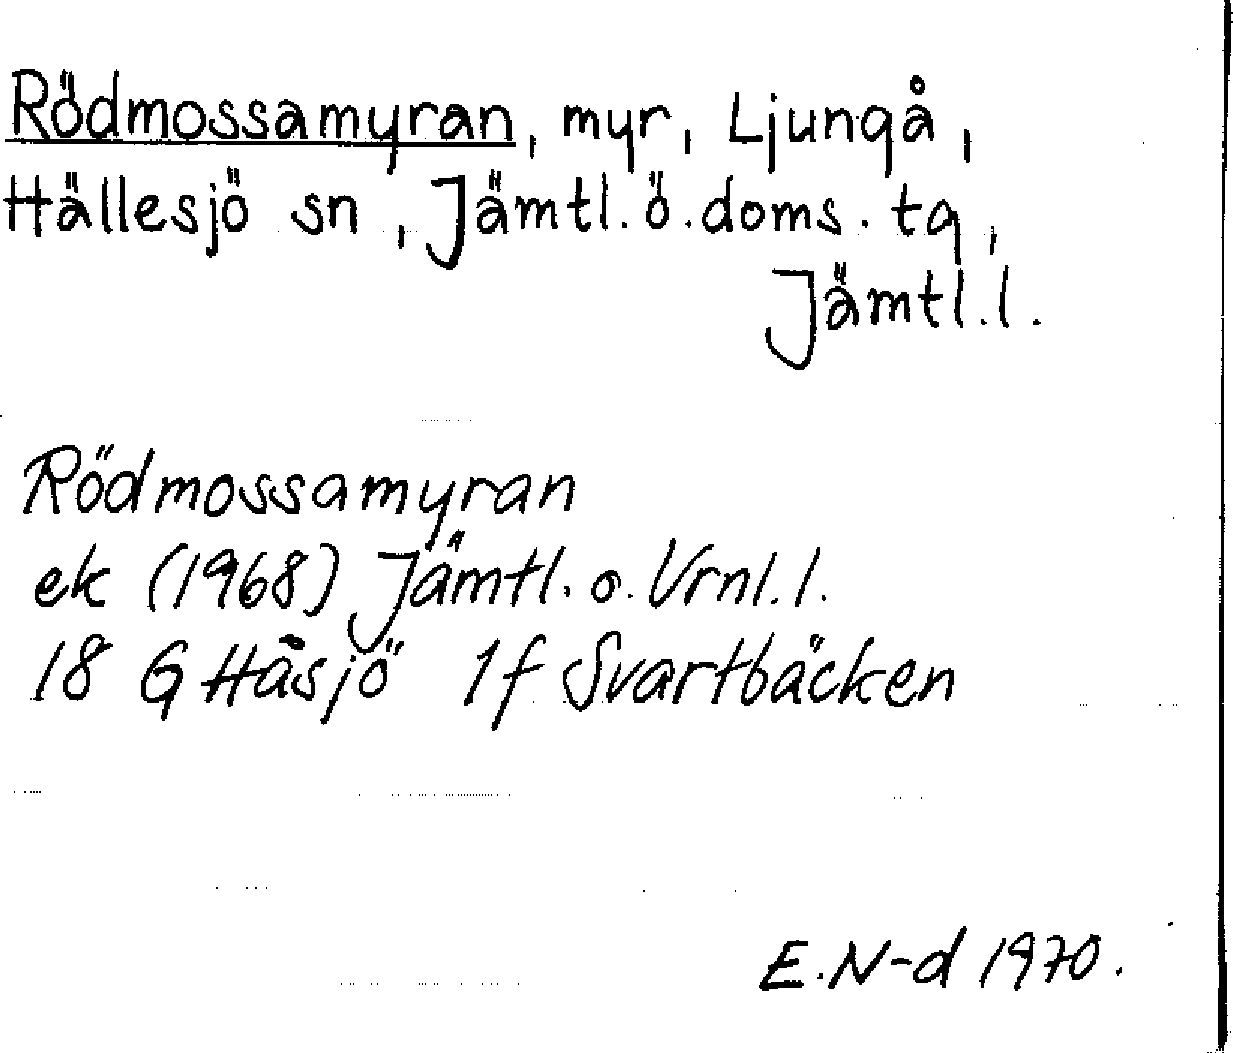 Rödmossamyran, myr, Ljungå,
Hällesjö sn, Jämtl. ö. doms. tg,
Jämtl. l.
Rödmossamyran
ek (1968) Jämtl. o. Vrnl. l.
18 G Håsjö 1f Svartbäcken
E. N-d 1970.